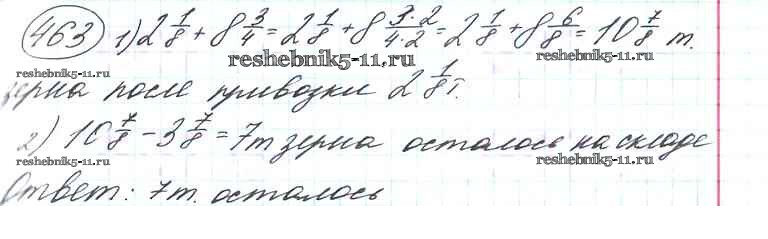 463 1) 2 1/8 + 8 3/4 = 2 1/8 + 8 3·2/4·2 = 2 1/8 + 8 6/8 = 10 7/8 т.
reshebnik5-11.ru reshebnik5-11.ru reshebnik5-11.ru
зерна после привозки 2 1/8 т.
2) 10 7/8 - 3 7/8 = 7 т зерна осталось на складе
reshebnik5-11.ru reshebnik5-11.ru
Ответ: 7 т. осталось